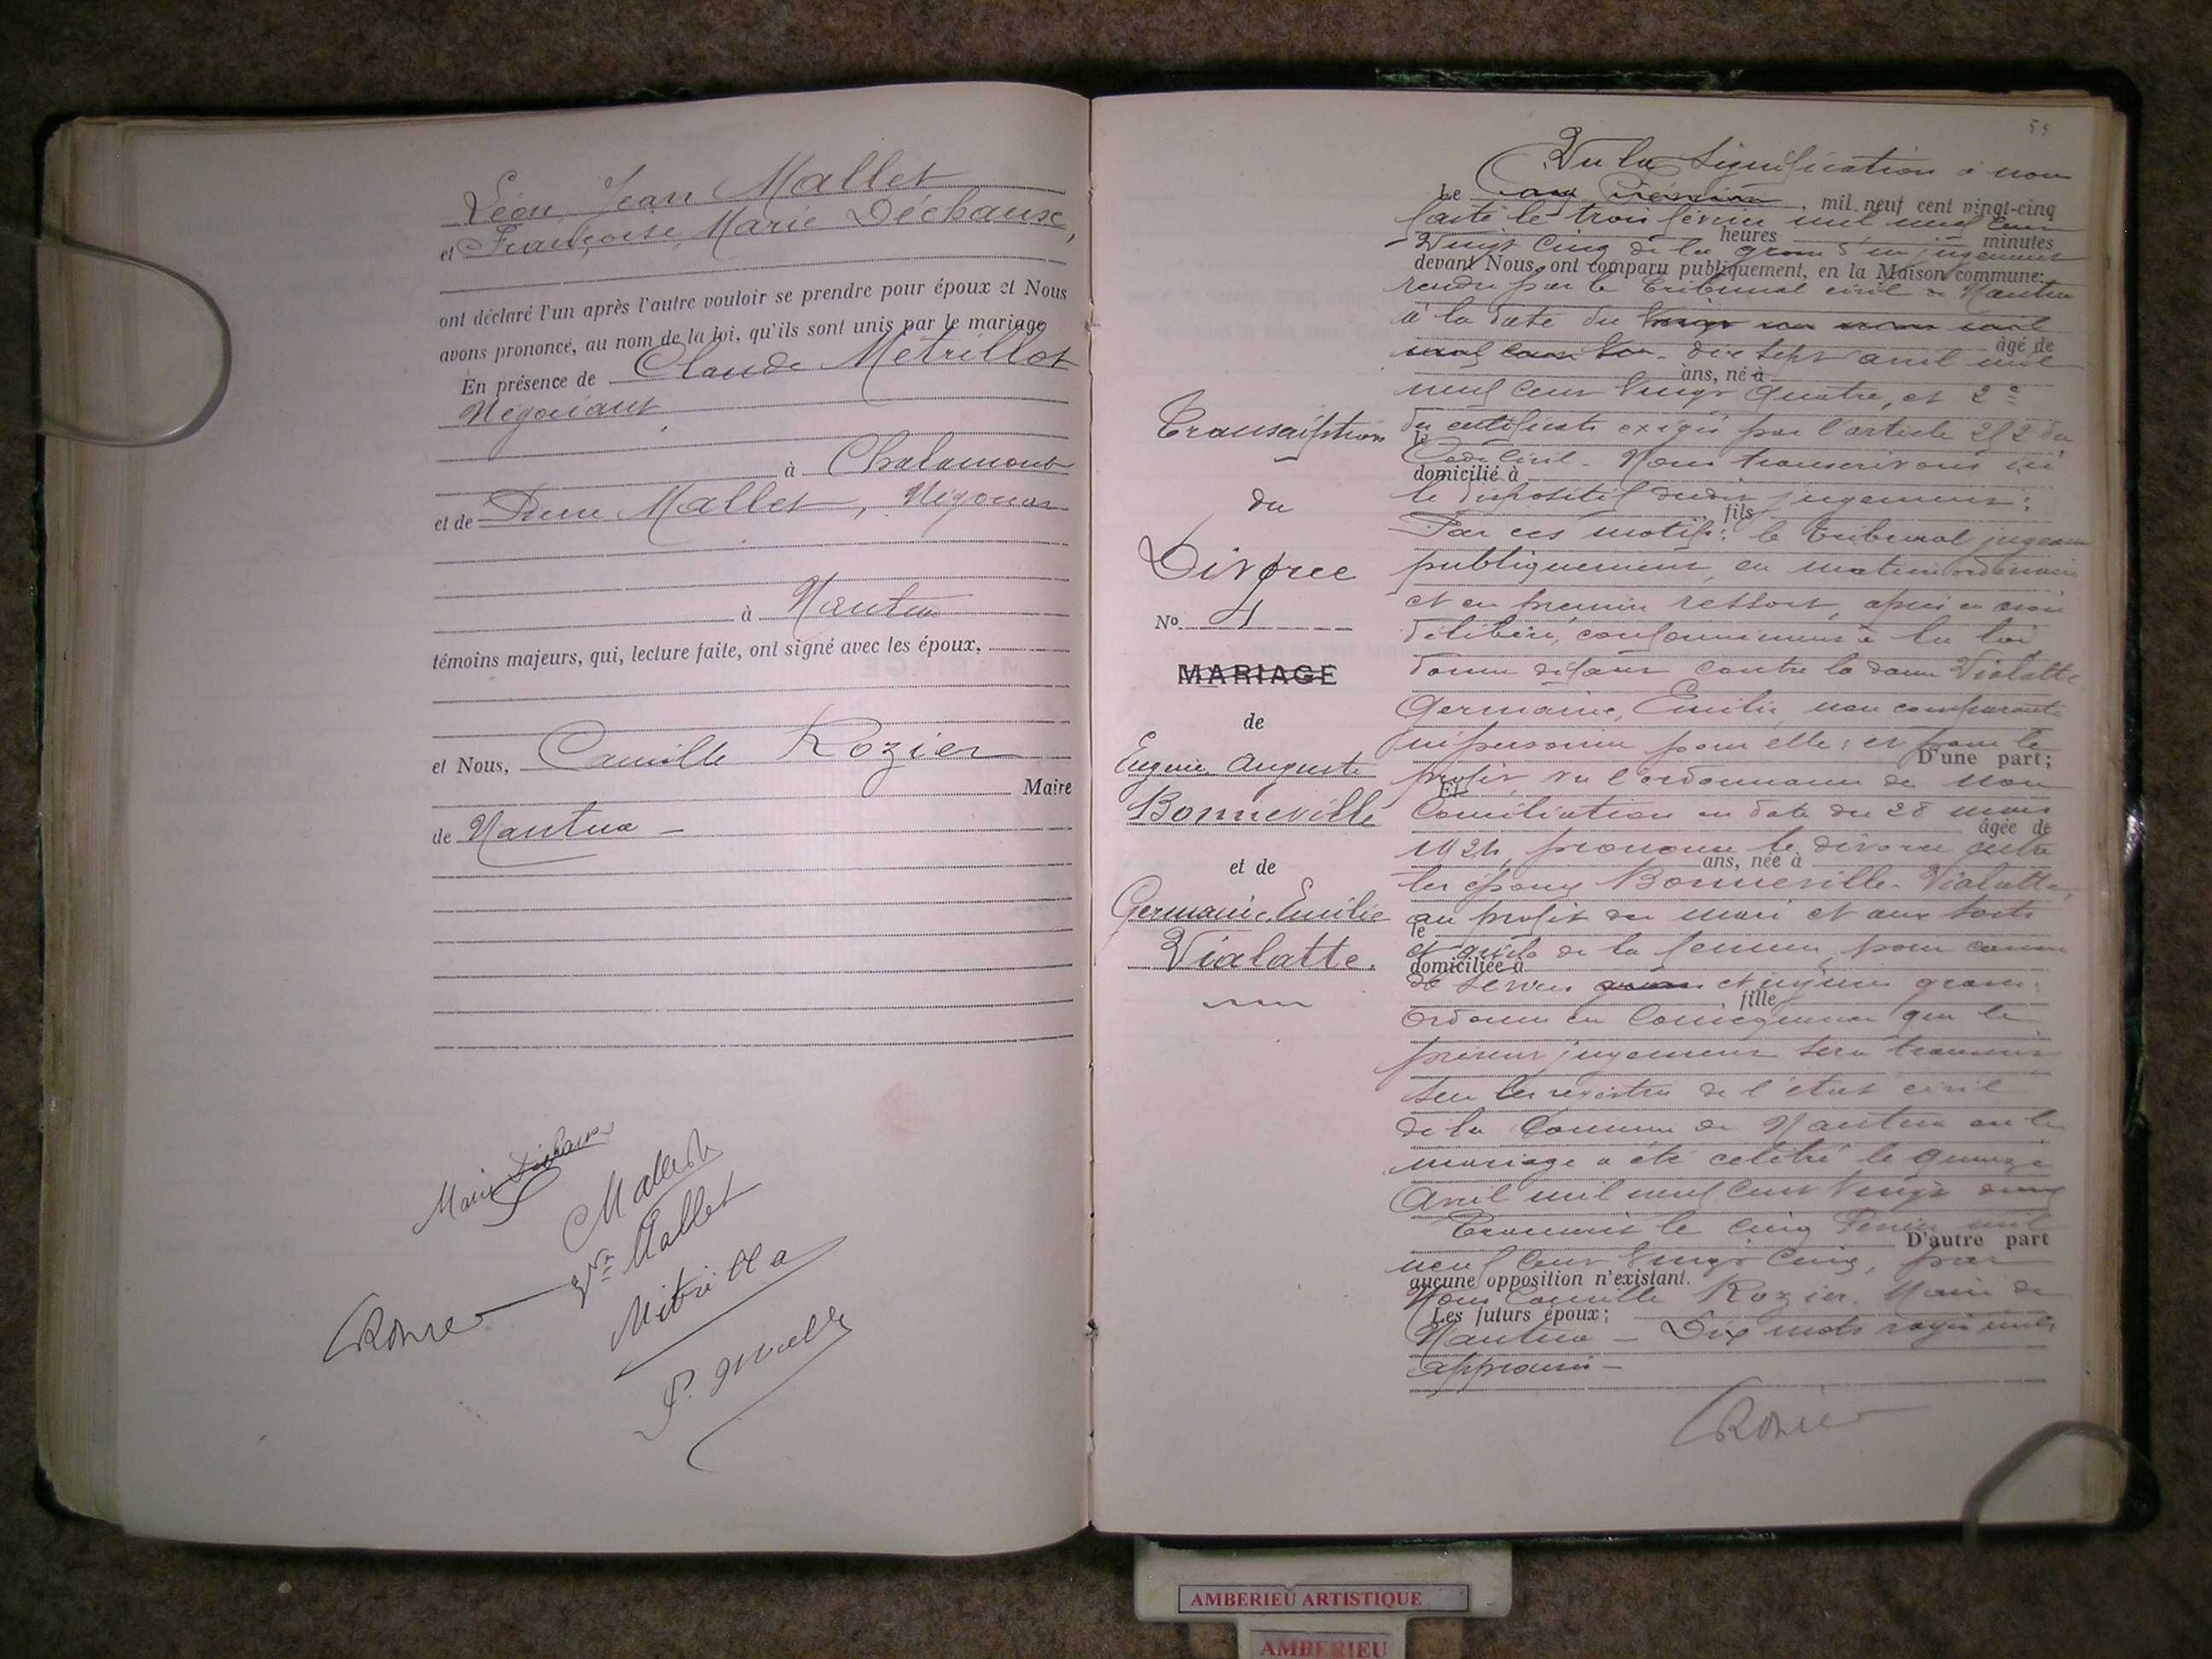 Léon, Jean Mallet
et Françoise, Marie Déchause,
ont déclaré l'un après l'autre vouloir se prendre pour époux et Nous
avons prononcé, au nom de la loi, qu'ils sont unis par le mariage
En présence de Claude Métrillot
Négociant
à Chalamont
et de Pierre Mallet, Négociant
à Nantua
témoins majeurs, qui, lecture faite, ont signé avec les époux,
et Nous, Camille Rozier
Maire
de Nantua
Marie Déchause
Mallet
Vve Mallet
Rozier
P. Mallet
Transcription
du
Divorce
No 1
MARIAGE
de
Eugène Auguste
Bonneville
et de
Germaine Emilie
Vialatte.
Vu la signification à nous
Le Cinq Février, mil neuf cent vingt-cinq
faite le trois février mil neuf cent
heures minutes
Vingt Cinq de la grosse d'un jugement
devant Nous, ont comparu publiquement, en la Maison commune:
rendu par le tribunal civil de Nantua
à la date du
âgé de
dix sept avril mil
ans, né à
neuf cent vingt quatre, et 2°
des certificats exigés par l'article 252 du
le
Code Civil. Nous transcrivons ici
domicilié à
le dispositif dudit jugement:
fils
Par ces motifs: le tribunal jugeant
publiquement, en matière ordinaire
et en premier ressort, après en avoir
délibéré, conformément à la loi
donne défaut contre la dame Vialatte
Germaine, Emilie, non comparante
ni personne pour elle; et pour le
D'une part;
profit, vu l'ordonnance de non
Et
Conciliation en date du 28 mars
âgée de
1924, prononce le divorce entre
ans, née à
les époux Bonneville-Vialatte,
au profit du mari et aux torts
le
et griefs de la femme, pour cause
domiciliée à
de sévices et injures graves.
fille
Ordonne en conséquence que le
présent jugement sera transcrit
sur les registres de l'état civil
de la Commune de Nantua où le
mariage a été célébré le quinze
Avril mil neuf cent vingt deux
Transcrit le cinq Février mil
D'autre part
neuf cent vingt cinq, par
aucune opposition n'existant.
Nous Camille Rozier, Maire de
Les futurs époux;
Nantua — Dix mots rayés nuls
approuvés —
Rozier
AMBERIEU ARTISTIQUE
AMBERIEU